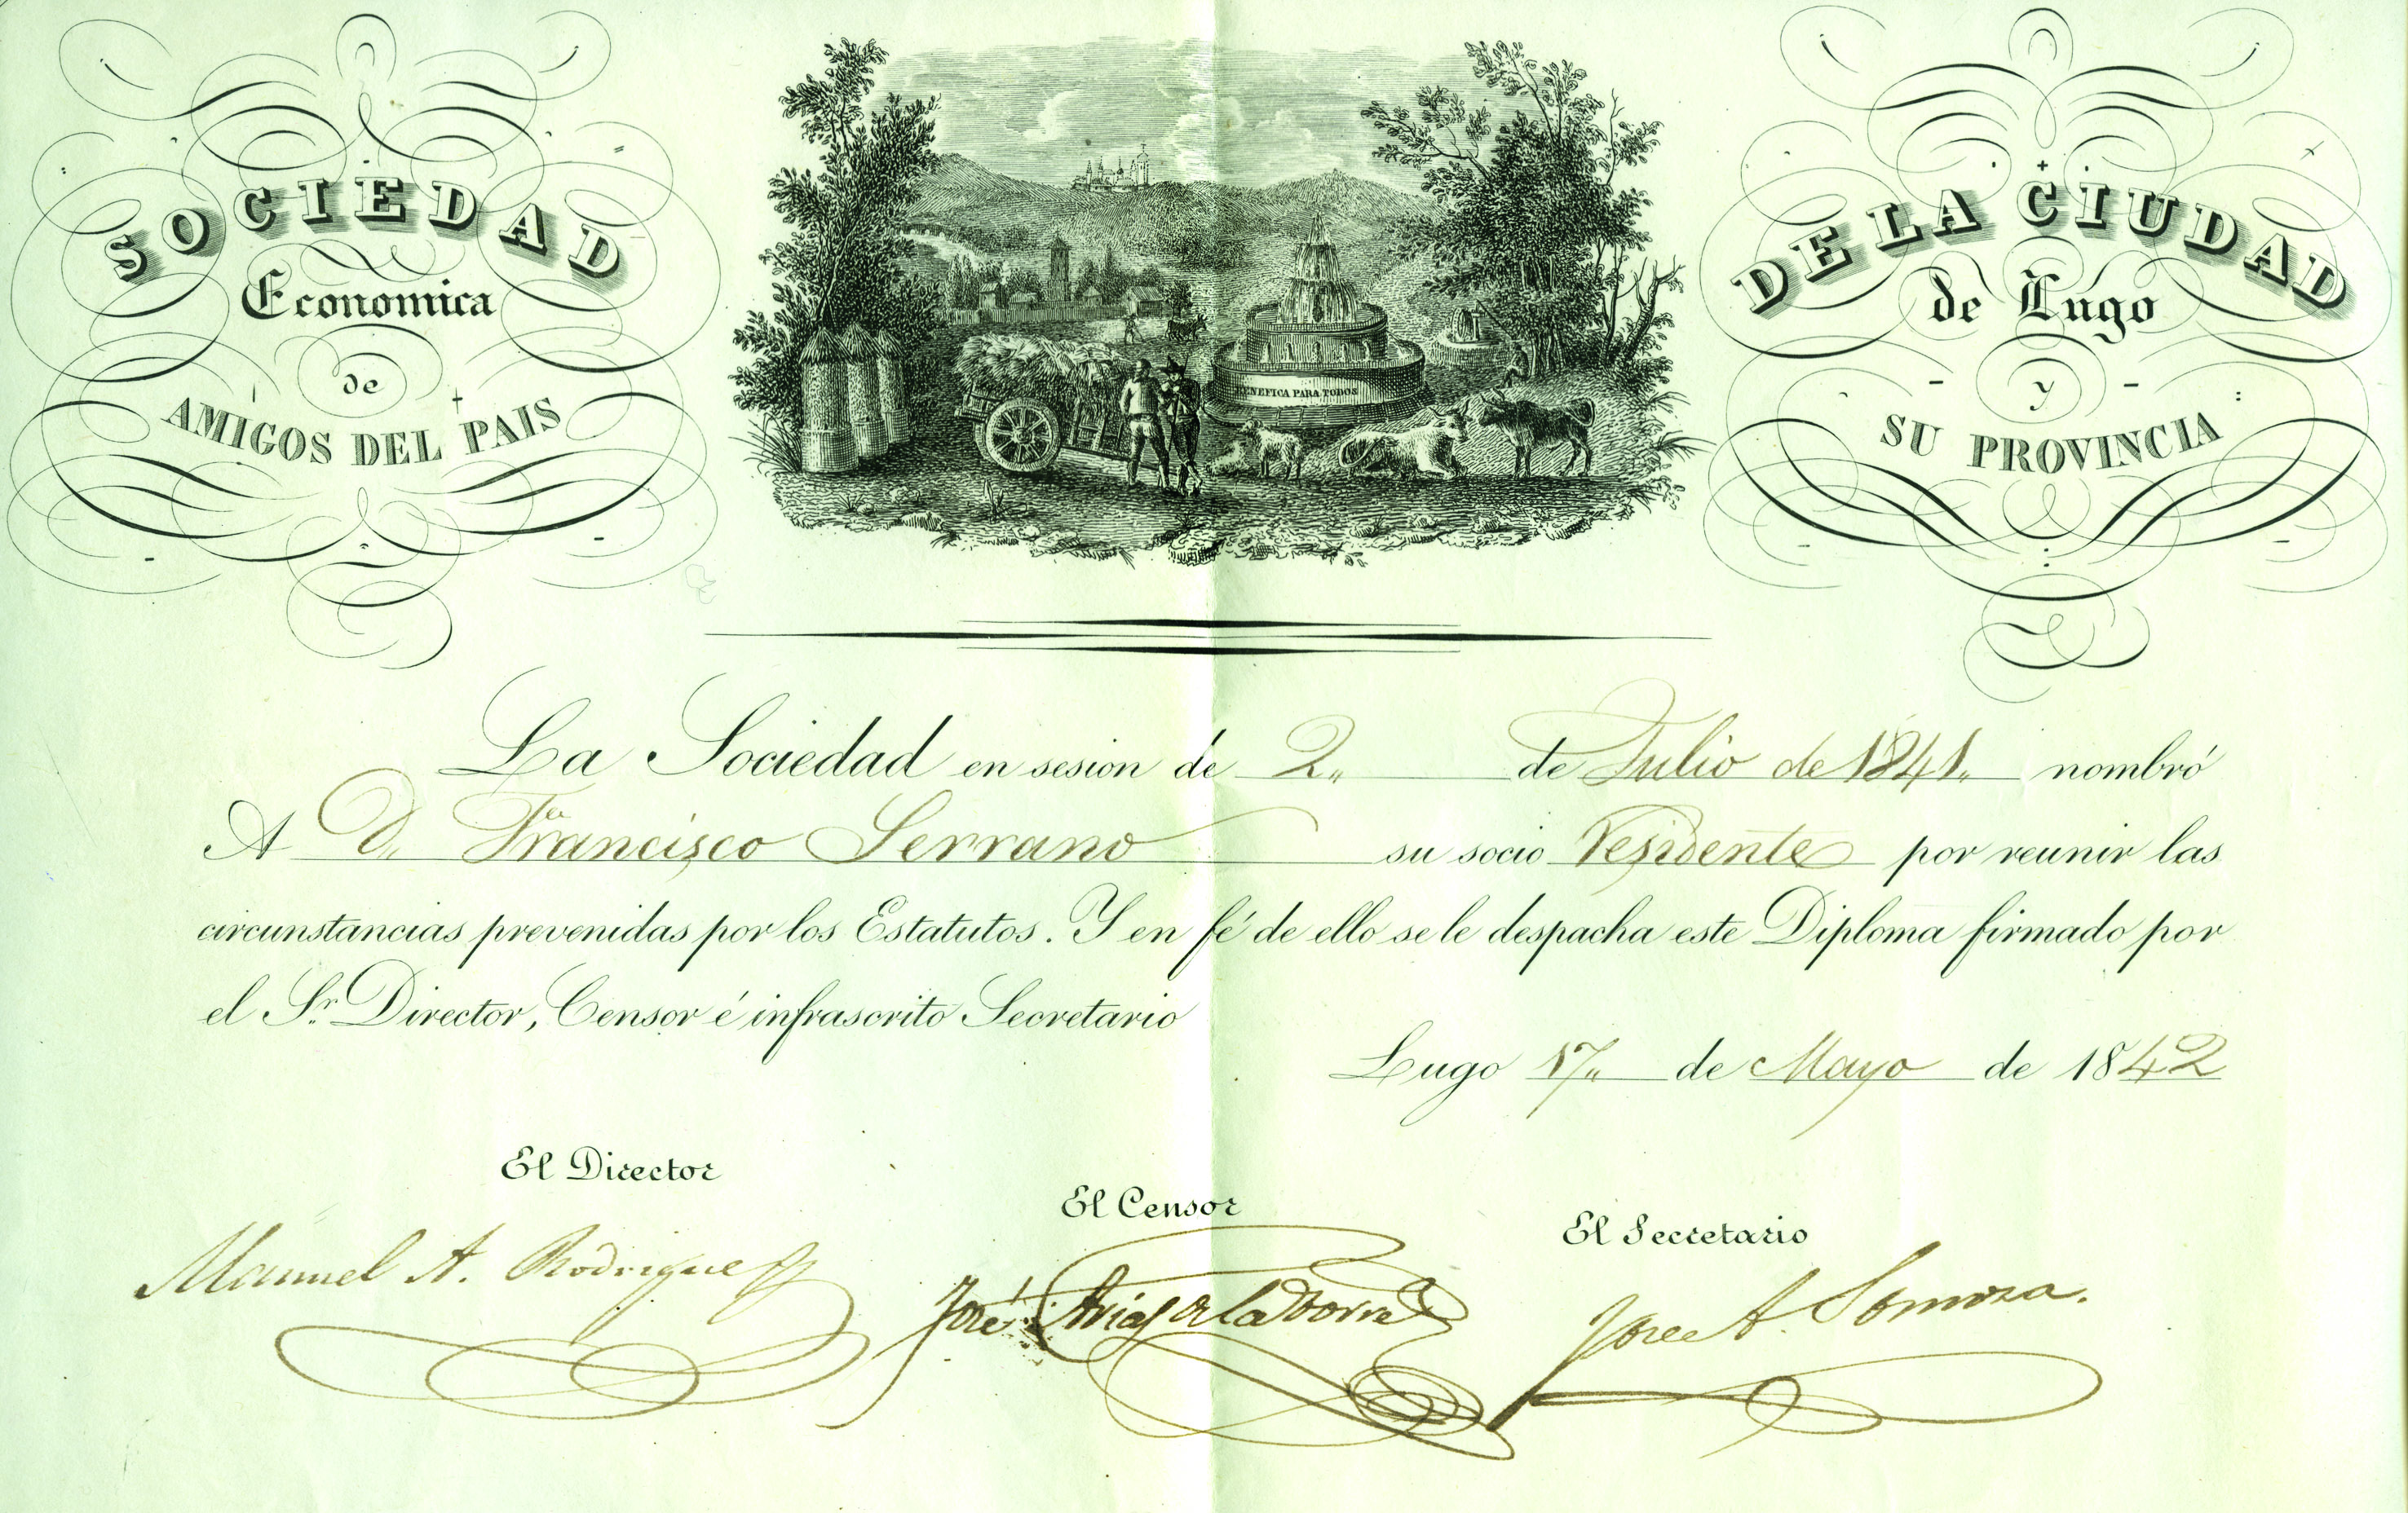 SOCIEDAD
Economica
de
AMIGOS DEL PAIS
DE LA CIUDAD
de Lugo
y
SU PROVINCIA
ENEFICA PARA TODOS
La Sociedad en sesion de 2,, de Julio de 1841,, nombró
A D. Francisco Serrano su socio residente por reunir las
circunstancias prevenidas por los Estatutos. Y en fé de ello se le despacha este Diploma firmado por
el Sr. Director, Censor é infrascrito Secretario
Lugo 17,, de Mayo de 1842
El Director
El Censor
El Secretario
Manuel A. Rodriguez
José Arias de la Torre
Jose A. Somoza.